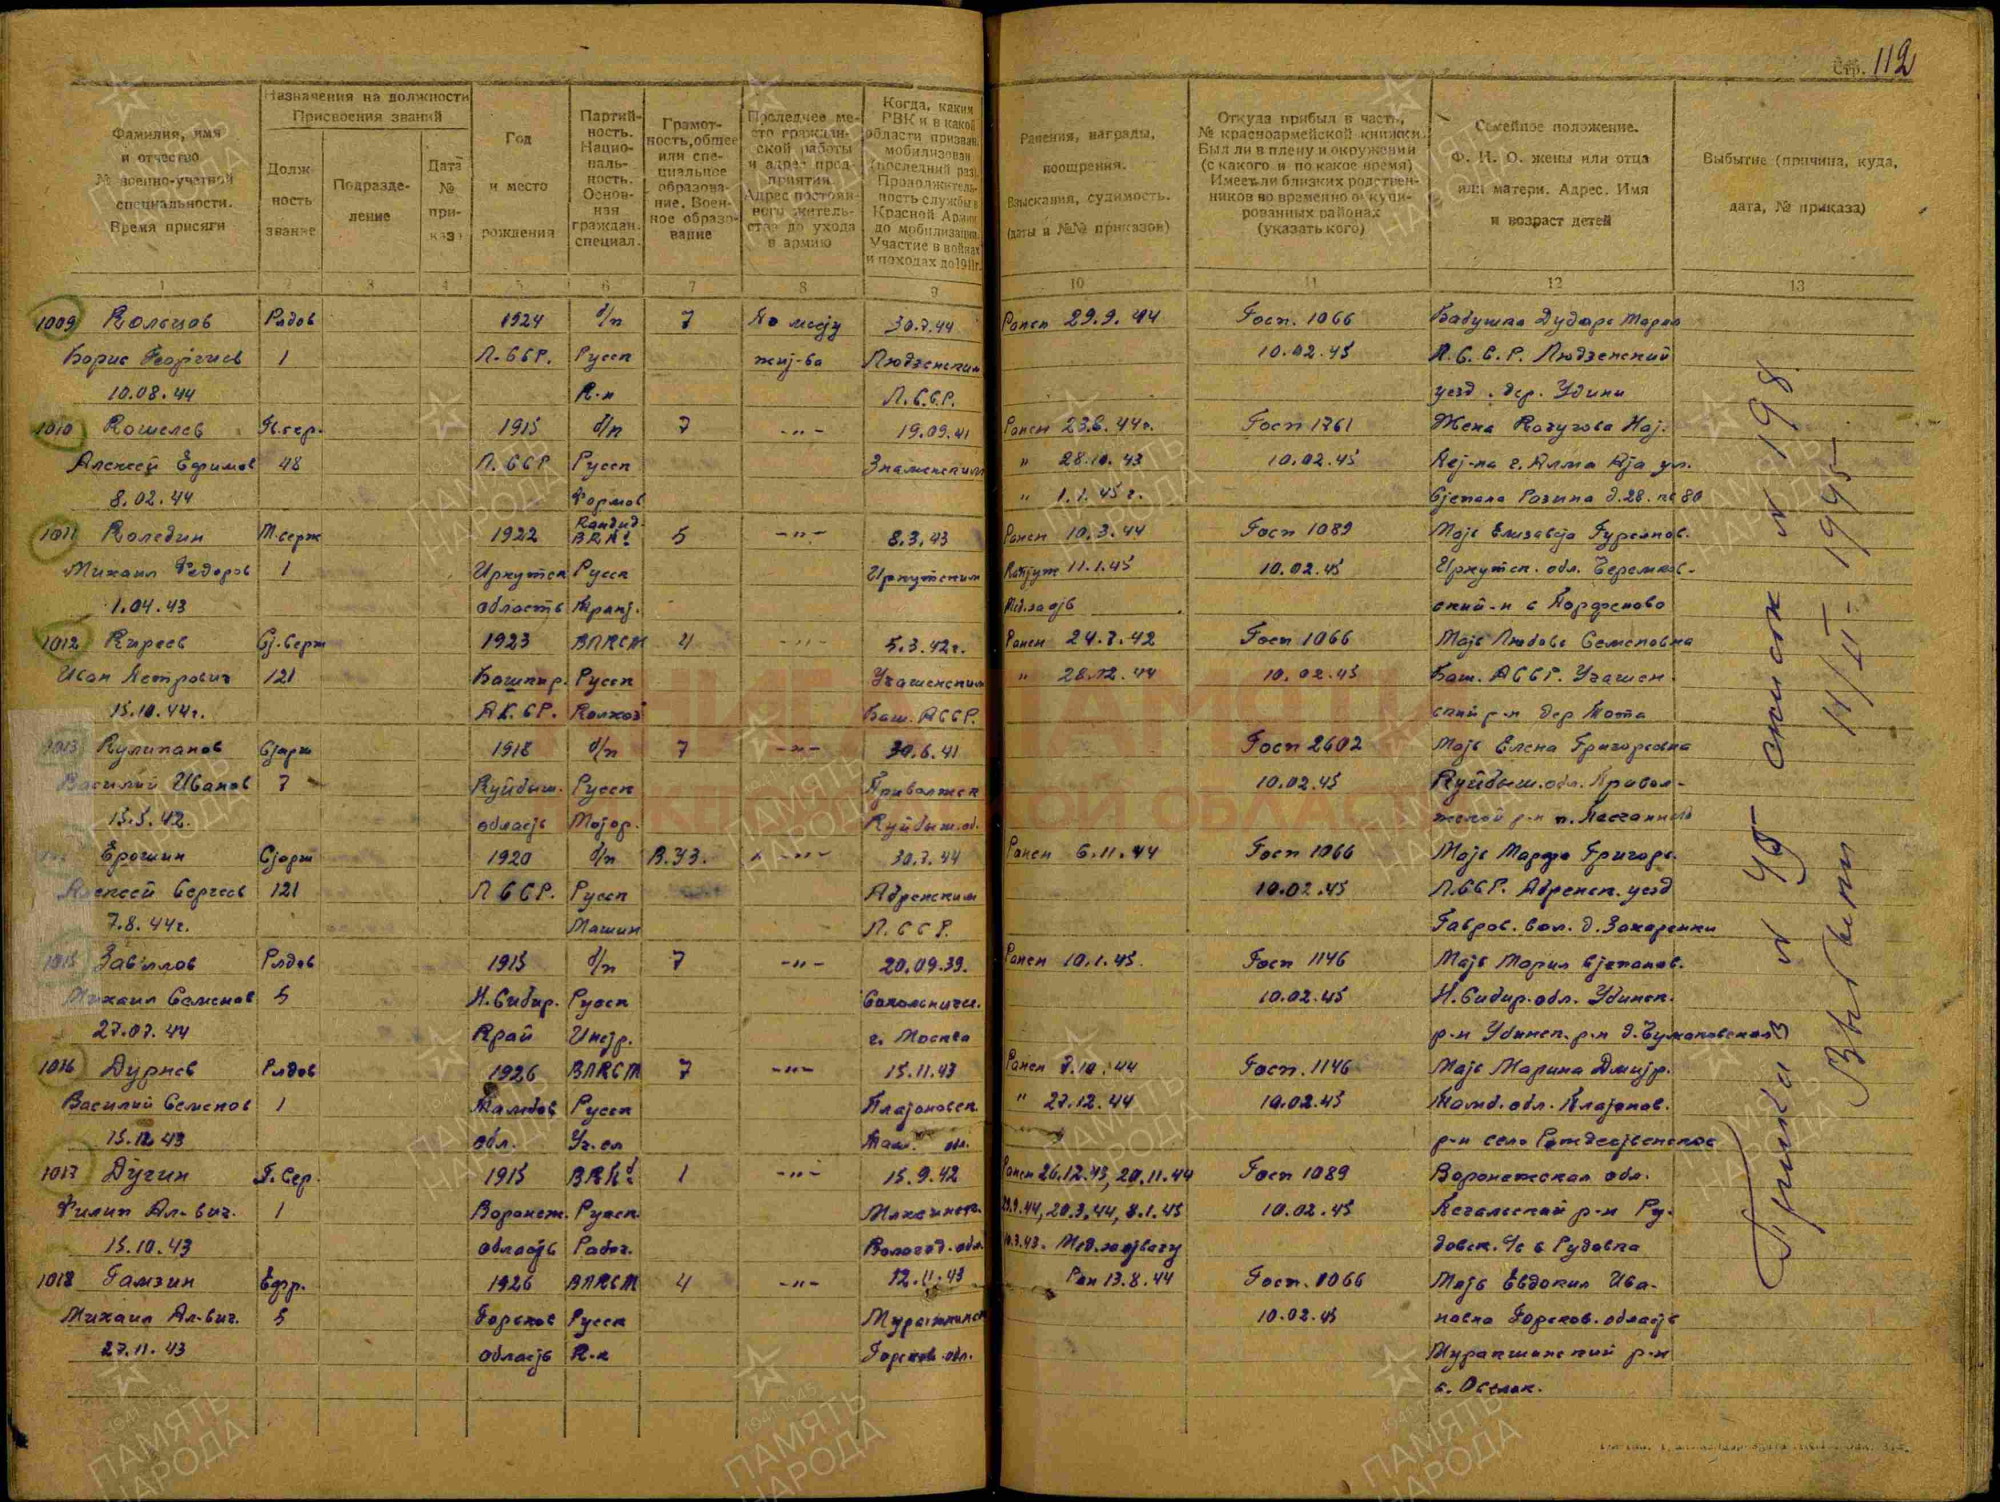 Стр. 112
Фамилия, имя
и отчество
№ военно-учетной
специальности.
Время присяги
Назначения на должности
Присвоения званий
Долж-
ность
звание
Подразде-
ление
Дата
№
при-
каз
Год
и место
рождения
Партий-
ность.
Нацио-
наль-
ность.
Основ-
ная
граждан.
специал.
Грамот-
ность, общее
или спе-
циальное
образова-
ние. Воен-
ное образо-
вание
Последнее ме-
сто граждан-
ской работы
и адрес пред-
приятия.
Адрес постоян-
ного житель-
ства до ухода
в армию
Когда, каким
РВК и в какой
области призван,
мобилизован
(последний раз).
Продолжитель-
ность службы в
Красной Армии
до мобилизации.
Участие в войнах
и походах до 1941г.
Ранения, награды,
поощрения.
Взыскания, судимость.
(даты и №№ приказов)
Откуда прибыл в часть,
№ красноармейской книжки.
Был ли в плену и окружении
(с какого и по какое время)
Имеет ли близких родствен-
ников во временно оккупи-
рованных районах
(указать кого)
Семейное положение.
Ф. И. О. жены или отца
или матери. Адрес. Имя
и возраст детей
Выбытие (причина, куда,
дата, № приказа)
1 2 3 4 5 6 7 8 9 10 11 12 13
1009 Кольцов Рядов 1924 б/п 7 По месту 30.7.44 Ранен 29.9.44 Госп. 1066 Бабушка Дударе Мария
Борис Георгиев 1 Л.ССР. Русск жит-ва Людзенским 10.02.45 Л.С.С.Р. Людзенский
10.08.44 К.-н Л.С.С.Р. уезд. дер. Удини
1010 Кошелев Гв.сер. 1915 б/п 7 -"- 19.09.41 Ранен 23.6.44г. Госп 1761 Жена Кочугова Нат.
Алексей Ефимов 48 Л.ССР Русск Знаменским " 28.10.43 10.02.45 Пет-на г. Алма Ата ул.
8.02.44 Формов " 1.1.45г. Степана Разина д.28. кв 80
1011 Коледин М.серж 1922 Кандид. ВКПб 5 -"- 8.3.43 Ранен 10.3.44 Госп 1089 Мать Елизавета Гурьянов.
Михаил Федоров 1 Иркутск Русск Иркутским Контуж 11.1.45 10.02.45 Иркутск. обл. Черемхов-
1.04.43 область Тракт. Мед.за отв ский-н с Парфеново
1012 Киреев Ст.серж 1923 ВЛКСМ 4 -"- 5.3.42г. Ранен 24.7.42 Госп 1066 Мать Любовь Семеновна
Иван Петрович 121 Башкир. Русск " 28.12.44 10.02.45 Баш. АССР.
15.10.44г. Колхоз Баш. АССР. ский р-н дер
1013 Кулипанов Старш 1918 б/п 7 -"- 30.6.41 Госп 2602 Мать Елена Григорьевна
Василий Иванов 7 Куйбыш. Русск Приволжск 10.02.45 Куйбыш.обл. Привол-
15.5.42. область Мотор. Куйбыш.об. жской р-н
Ерошин Старш 1920 б/п В.УЗ. -"- 30.7.44 Ранен 6.11.44 Госп 1066 Мать Марфа Григорь.
Алексей Сергеев 121 Л ССР. Русск Абренским 10.02.45 Л.ССР. Абренск. уезд
7.8.44г. Машин Л.ССР. Гавров. вол. д. Захаренки
1015 Завьялов Рядов 1915 б/п 7 -"- 20.09.39. Ранен 10.1.45. Госп 1146 Мать Мария Степанов.
Михаил Семенов 5 Н.Сибир. Русск Сокольничес. 10.02.45 Н.Сибир.обл. Убинск.
27.07.44 Край г. Москва р-н Убинск. р-н
1016 Дурнев Рядов 1926 ВЛКСМ 7 -"- 15.11.43 Ранен 7.10.44 Госп. 1146 Мать Марина Дмитр.
Василий Семенов 1 Тамбов Русск Платоновск. " 27.12.44 10.02.45 Тамб. обл. Платонов.
15.12.43 обл. Уч.ся Там. об. р-н село Рождественское
1017 Дугин Гв.Сер. 1915 ВКПб 1 -"- 15.9.42 Ранен 26.12.43, 20.11.44 Госп 1089 Воронежская обл.
Филип Ал-вич. 1 Воронеж. Русск. 29.9.44, 20.3.44, 8.1.45 10.02.45 р-н Ру-
15.10.43 область Рабоч. Вологод. обл. Мед. за отвагу довск. с/с с Рудовка
1018 Гамзин Ефр. 1926 ВЛКСМ 4 -"- 12.11.43 Ран 13.8.44 Госп. 1066 Мать Евдокия Ива-
Михаил Ал-вич. 5 Горьков Русск 10.02.45 новна Горьков. область
27.11.43 область К.-н Горьков. обл. р-н
с.
Приказ № 45 список № 198
Выбыли 14/II-1945
ПАМЯТЬ
НАРОДА
1941-1945